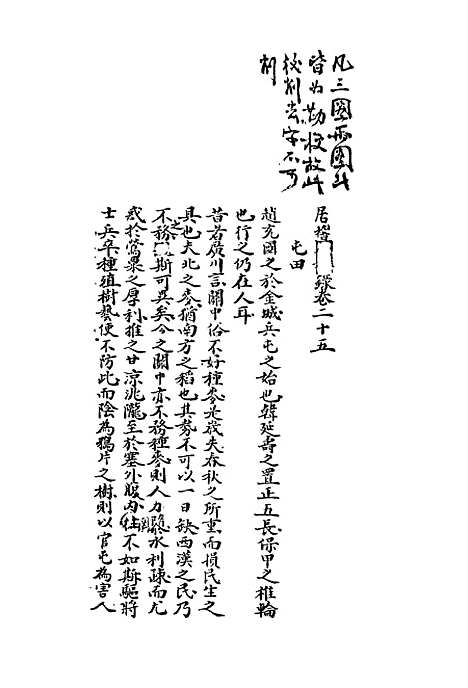 凡三圈兩圈此
皆為勘校故此
校刻者字不可
刻
居稽錄卷二十五
屯田
趙充國之於金城兵屯之始也韓延壽之置正五長保甲之椎輪
也行之仍在人耳
昔者廣川言關中俗不好種麥是歲失春秋之所重而損民生之
具也大北之麥猶南方之稻也其勢不可以一日缺西漢之民乃
不務之斯可異矣今之關中亦不務種麥則人力隨水利疎而尤
惑於鶯粟之厚利推之甘涼洮隴至於塞外腹內往往不如斯驅將
士兵卒種殖樹藝便不防此而陰為鴉片之樹則以官屯為害人